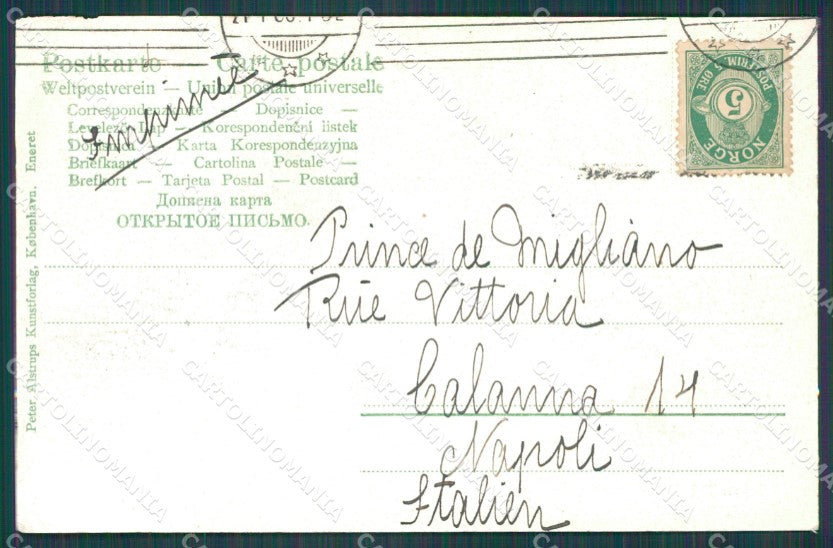 Postkarte — Carte postale
Weltpostverein — Union postale universelle
Correspondenzkarte — Dopisnice —
Levelező Lap — Korespondenční listek
Dopisnica — Karta Korespondenzyjna
Briefkaart — Cartolina Postale —
Brefkort — Tarjeta Postal — Postcard
Дописна карта
ОТКРЫТОЕ ПИСЬМО.
Imprimée
Peter Alstrups Kunstforlag, København. Eneret
POSTFRIM. 5 ØRE
5
NORGE
Prince de Migliano
Rue Vittoria
Calanna 14
Napoli
Italien
CARTOLINOMANIA